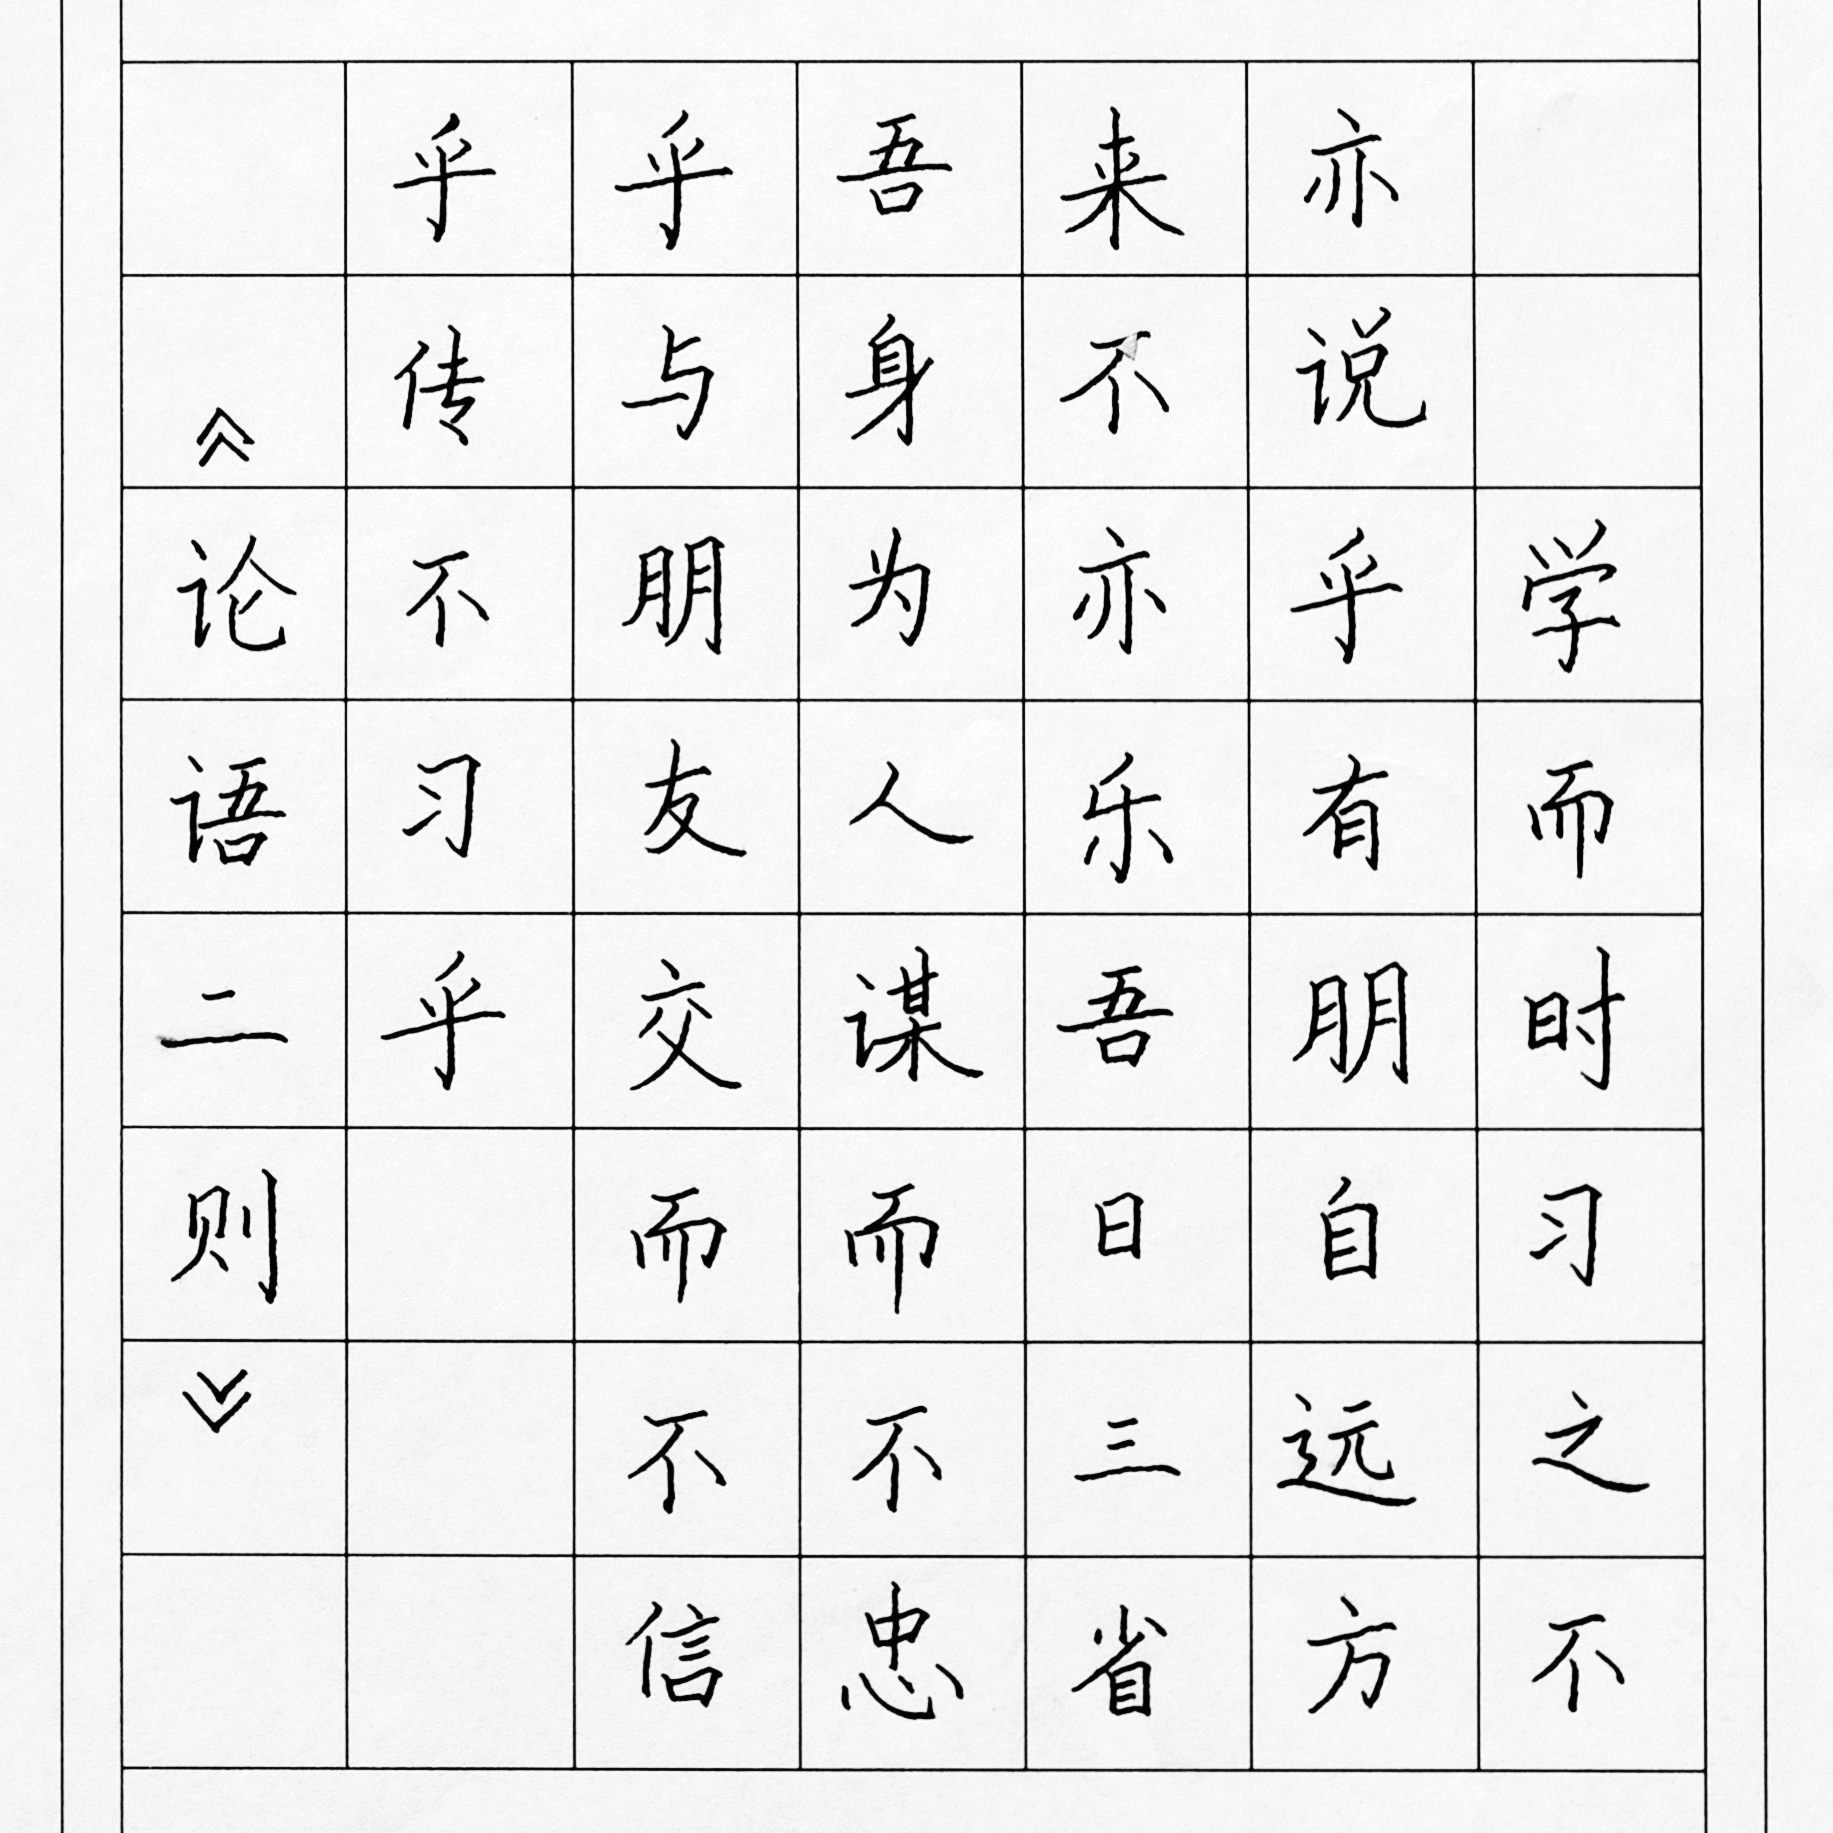 学而时习之不
亦说乎有朋自远方
来不亦乐吾日三省
吾身为人谋而不忠
乎与朋友交而不信
乎传不习乎
《论语二则》